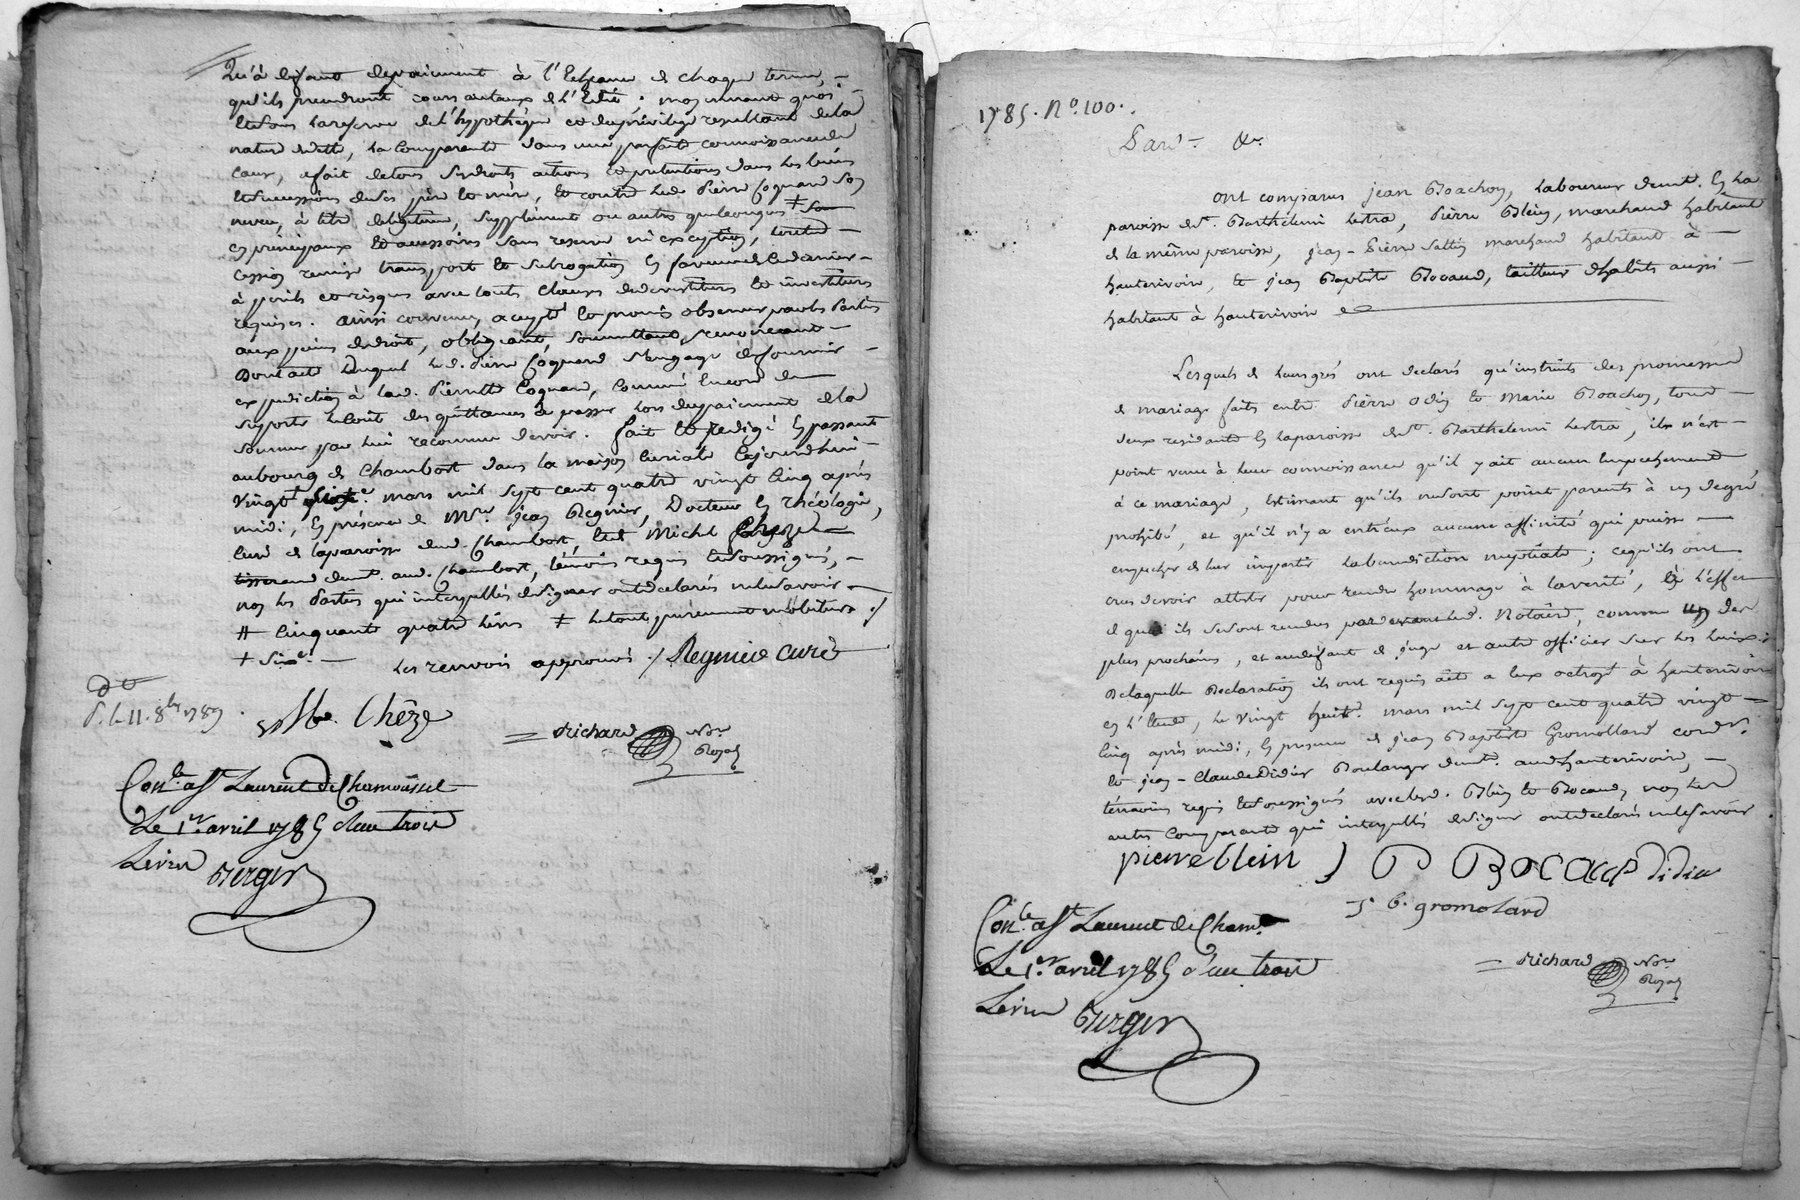 Qu'à deffaut depaiement à l'Echeance de chaque terme, —
qu'ils prendront cours au taux de l'Edit; moyennant quoi —
et sous la reserve de l'hypothèque et du privilege resultant de la
nature de dette, la Comparante dans une parfaite connoissance de
cause, a fait de tous ses droits actions et pretentions dans les biens
et successions de ses père et mère, et contre led. Pierre Coquard son
neveu, à titre de légitime, supplément ou autres quelconques ‡ son
en principaux et accessoires sans reserve ni exception, toute
cession remise transport et subrogation en faveur de ce dernier —
à perils et risques avec toutes clauses de devestiture et investiture
requises. ainsi convenu, accepté et promis observer par les Parties
aux peines de droit, obligeant, soumettant, renonceant —
Dont acte duquel led. Pierre Coquard s'engage de fournir —
expedition à lad. Pierrette Coquard, comme encore de
suporter le coût des quittances à passer lors du paiement de la
somme par lui reconnue devoir. fait et redigé en passant
au bourg de Chambost dans la maison Curiale Cejourdhui —
Vingt † mars mil sept cent quatre vingt Cinq après
midi, En présence de Mre. Jean Regnier, Docteur en théologie,
Curé de la paroisse dud. Chambost, et de Michel Cheze
tisserand demt. aud. Chambost, témoins requis et soussignés, —
non les Parties qui interpellées de signer ont declaré ne le savoir —
# Cinquante quatre livres ‡ le tout purement mobiliere ./
+ Sixe. — les renvois approuvés ./ Regnier curé
P. le 11. 8bre 1789.
Mel. Chêze
Richard Nre
Royal
Conlé. à St Laurent de Chamousset
Le 1er. avril 1785 d'au trois
Berger
1785. No. 100.
Pard. &c.
ont comparus Jean Roachon, laboureur demt. En la
paroisse de St. Barthelemi Lestra, Pierre Blein, marchand habitant
de la même paroisse, Jean-Pierre marchand habitant à —
hauterivoire, et Jean Baptiste Bocaud, tailleur d'habits aussi —
habitant à hauterivoire
Lesquels de leurs grés ont declarés qu'instruits des promesses
de mariage faites entre Pierre et Marie Roachon, tous —
deux residants En la paroisse de St. Barthelemi Lestra, il n'est —
point venu à leur connoissance qu'il y ait aucun Empechement
à ce mariage, Estimant qu'ils ne sont point parents à un degré
prohibé, et qu'il n'y a entr'eux aucune affinité qui puisse —
empecher de leur impartir la benediction nuptiale; ce qu'ils ont
crus devoir attester pour rendre hommage à la verité, à l'effet
de quoi ils se sont rendus pardevant led. Notaire, comme un des
plus prochains, et au deffaut de juge et autre officier sur les lieux:
De laquelle Declaration ils ont requis acte a eux octroyé à hauterivoire
en l'Etude, le Vingt huit. mars mil sept cent quatre vingt —
Cinq après midi, En presence de Jean Baptiste Gromollard cordr.
et Jean-Claude Didier Boulanger demt. aud. hauterivoire, —
témoins requis et soussignés avec lesd. Blein et Bocaud, non les
autres Comparants qui interpellés de signer ont declarés ne le savoir.
pierre blein J P BOCAUD didier
J. b. gromolard
Richard Nre
Royal
Conlé. à St Laurent de Cham.
Le 1er. avril 1785 d'au trois
Berger